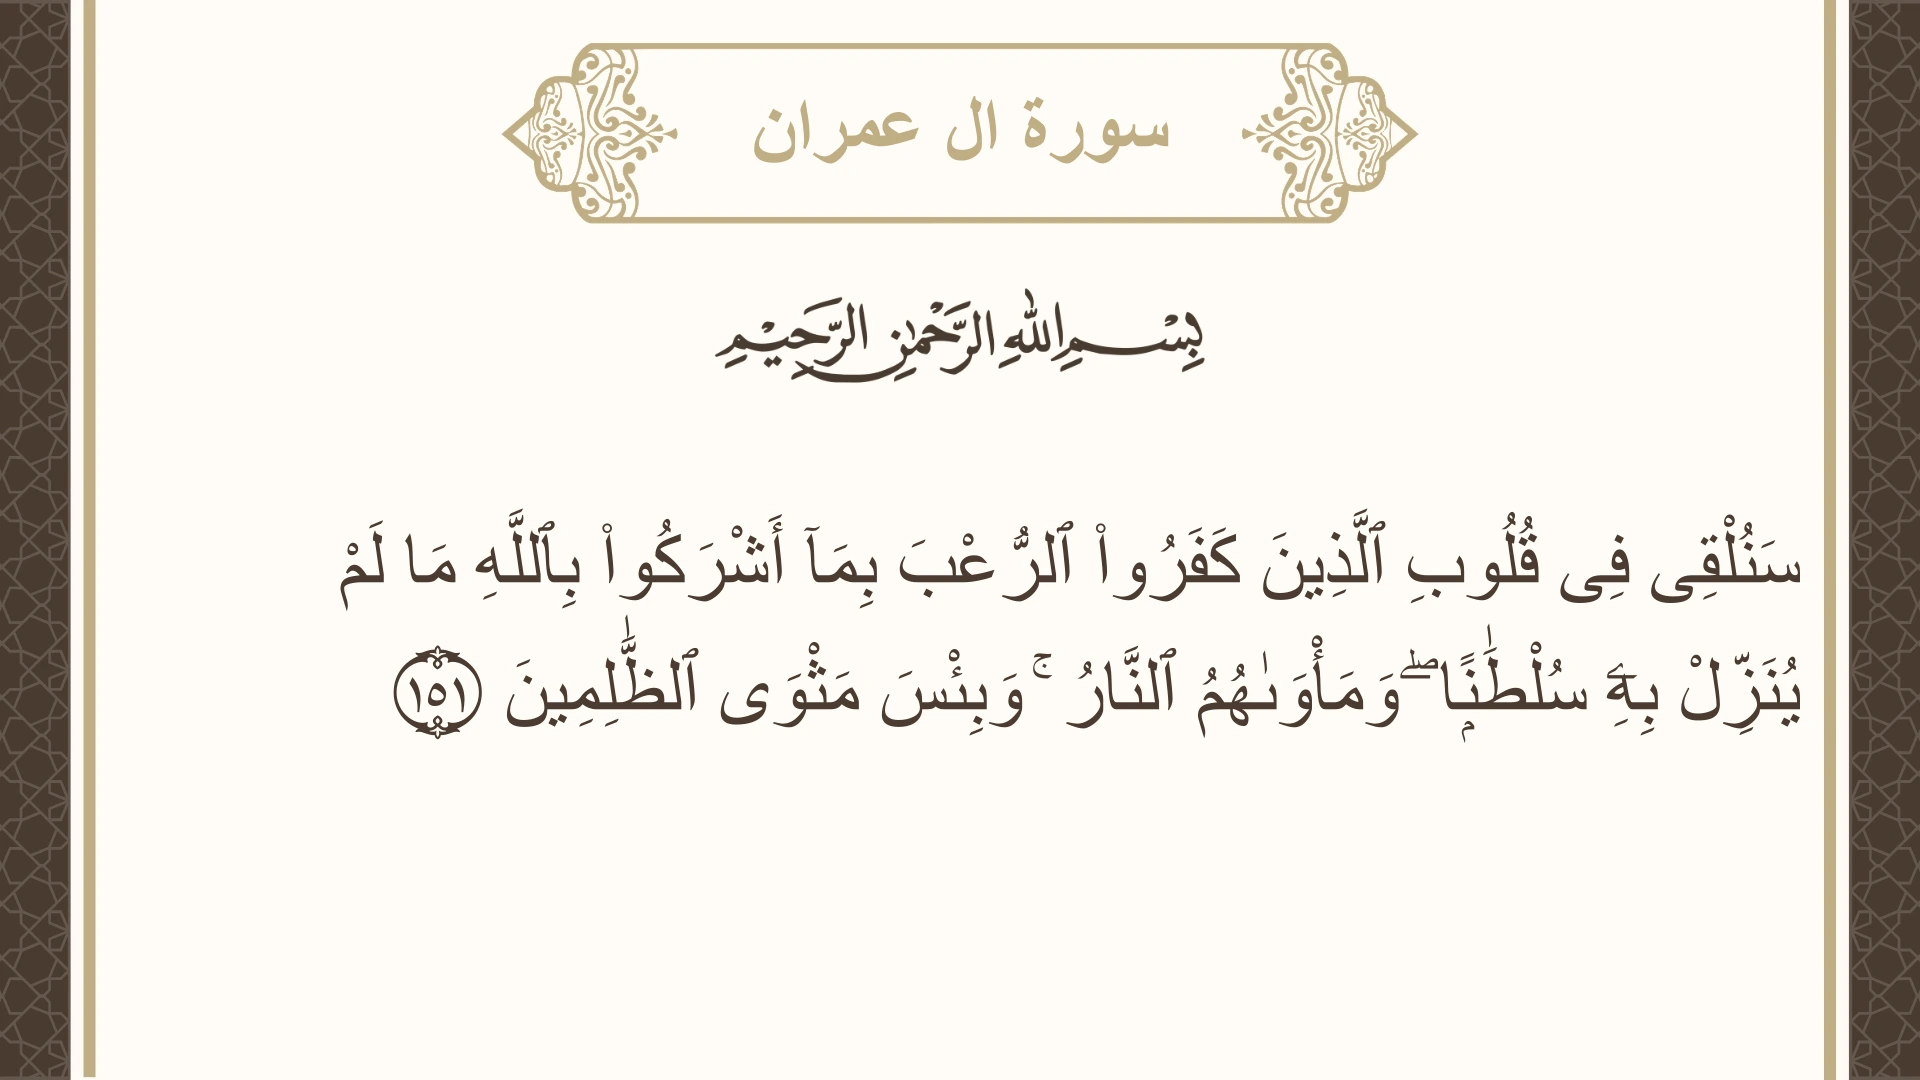 سورة ال عمران
بِسْمِ اللهِ الرَّحْمٰنِ الرَّحِيْمِ
سَنُلْقِى فِى قُلُوبِ ٱلَّذِينَ كَفَرُوا۟ ٱلرُّعْبَ بِمَآ أَشْرَكُوا۟ بِٱللَّهِ مَا لَمْ
يُنَزِّلْ بِهِۦ سُلْطَٰنًۭا ۖ وَمَأْوَىٰهُمُ ٱلنَّارُ ۚ وَبِئْسَ مَثْوَى ٱلظَّٰلِمِينَ ١٥١